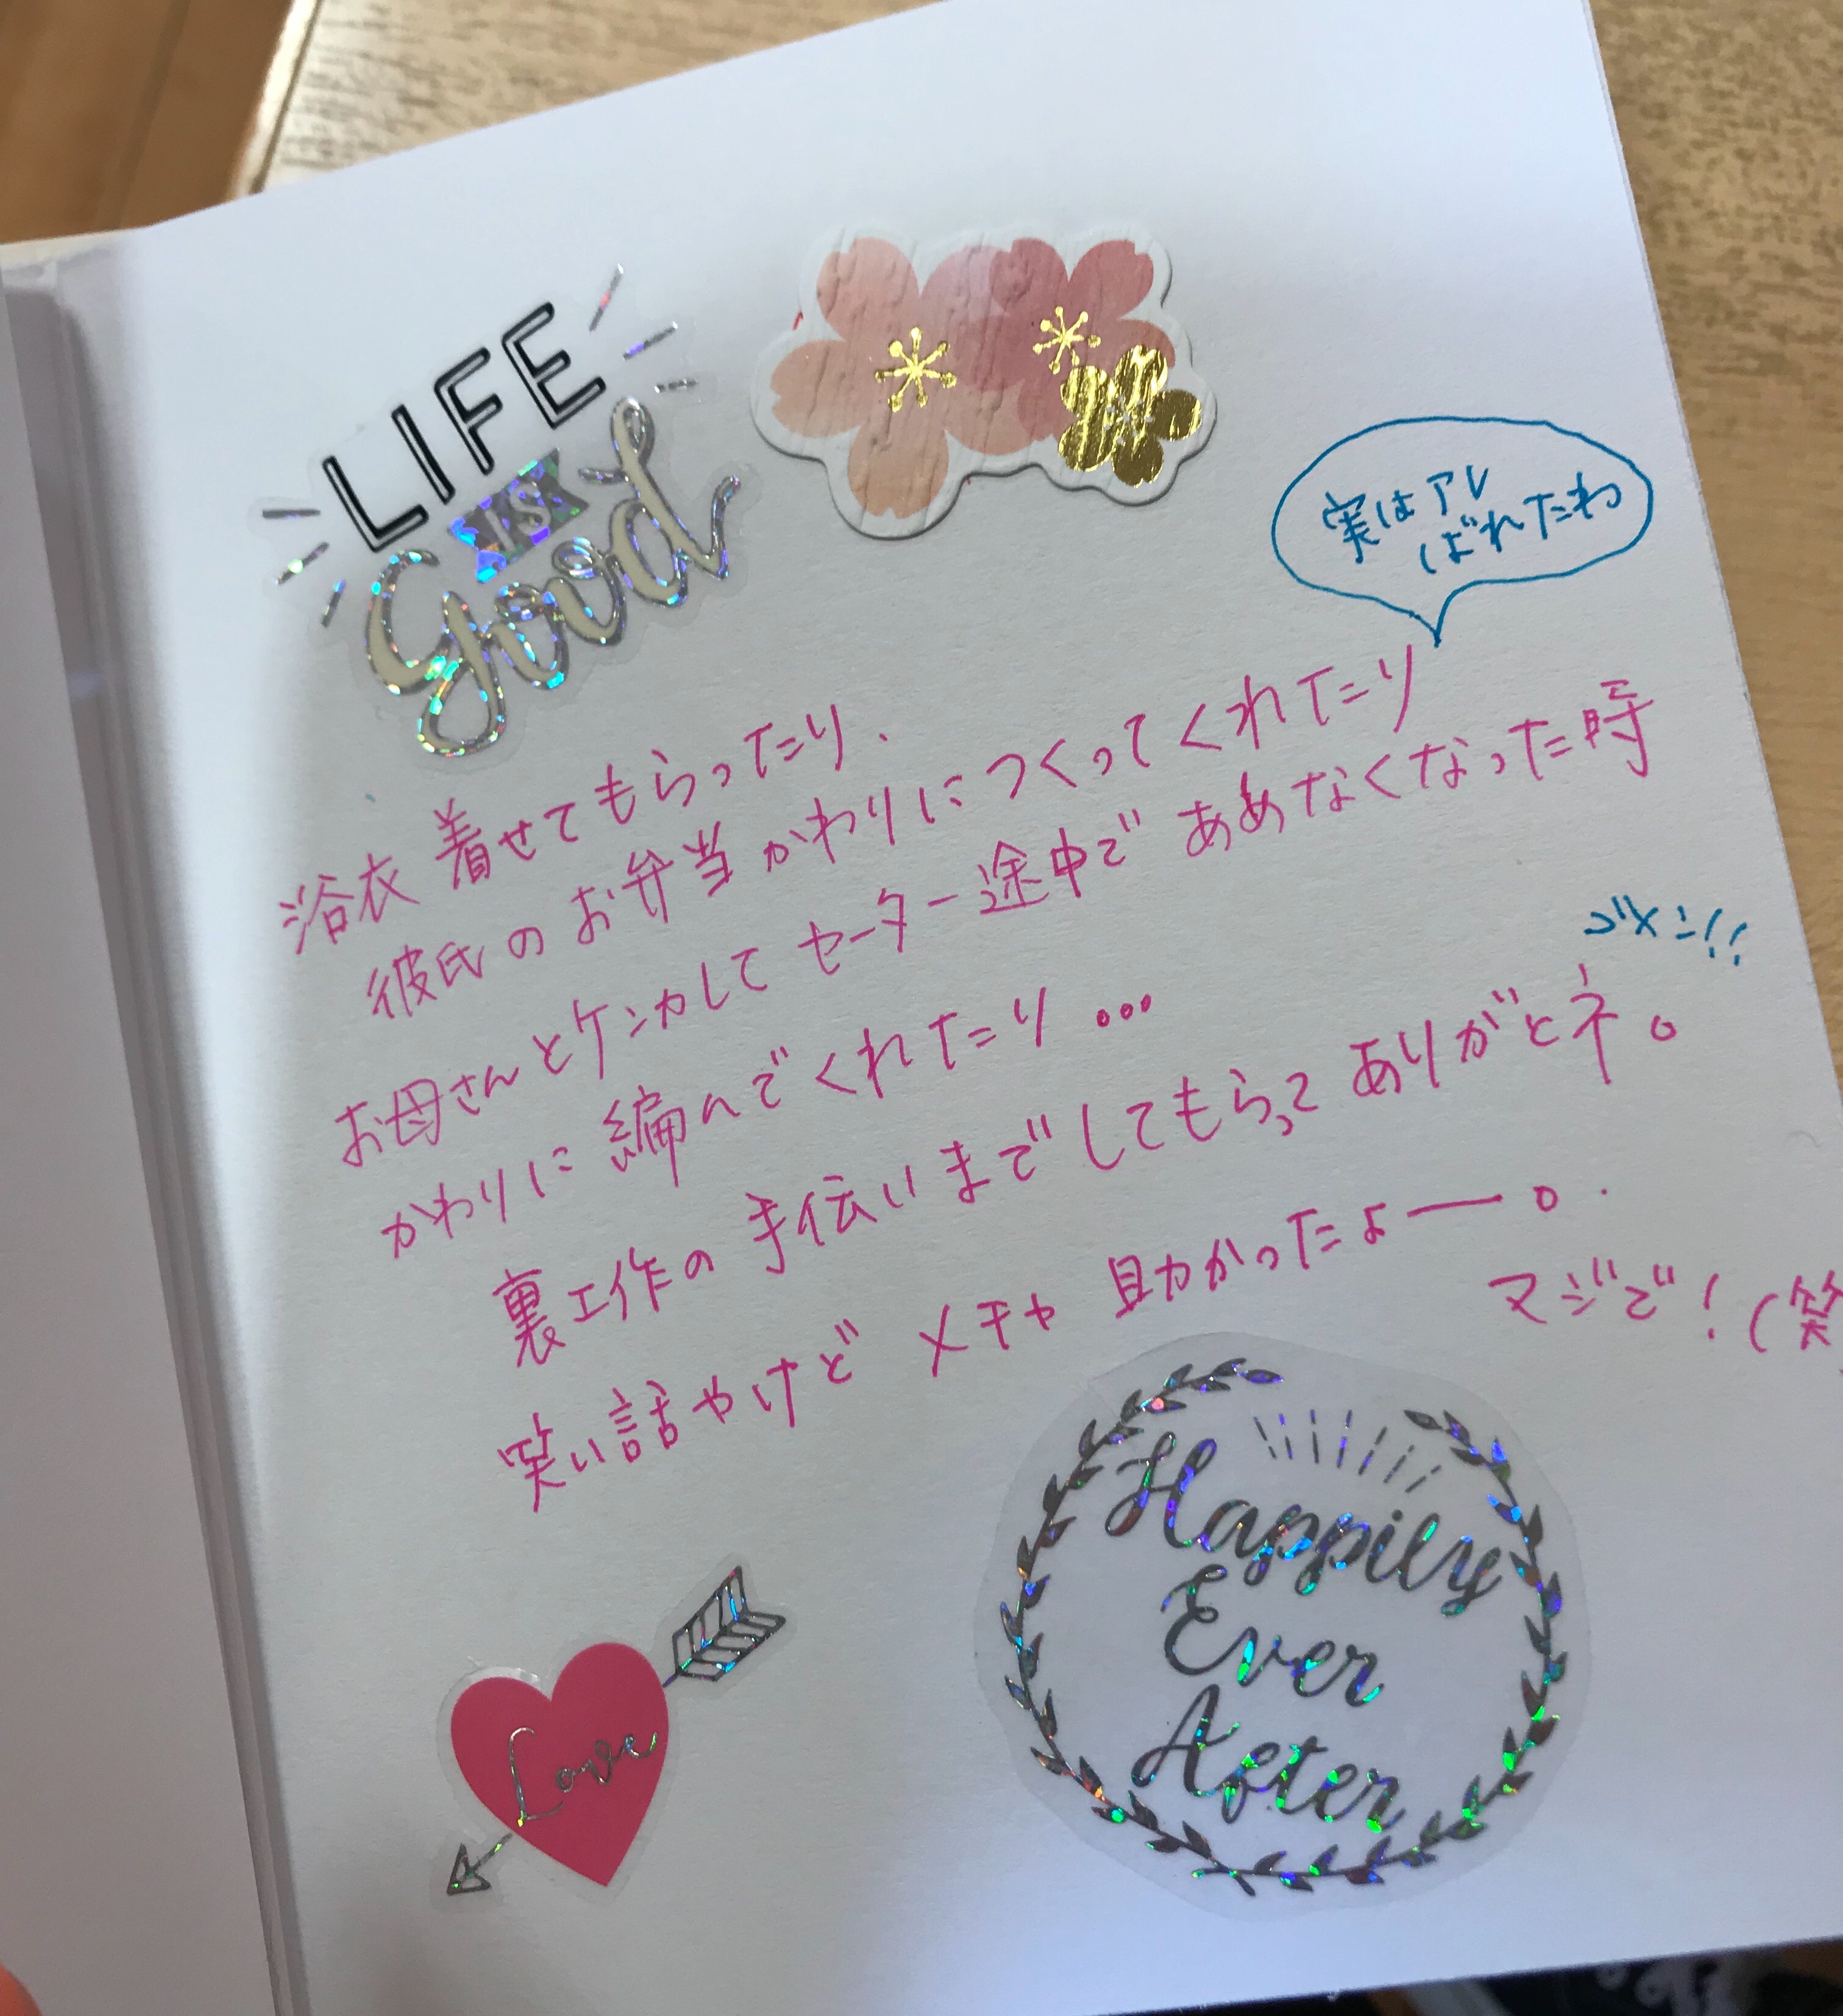 LIFE
IS
Good
実はアレ
ばれたわ
浴衣 着せてもらったり、
彼氏のお弁当かわりにつくってくれたり
お母さんとケンカしてセーター途中であめなくなった時
ゴメン!!
かわりに編んでくれたり...
裏工作の手伝いまでしてもらってありがとネ。
笑い話やけど メチャ 助かったよー。
マジで!(笑
Happily
Ever
After
Love